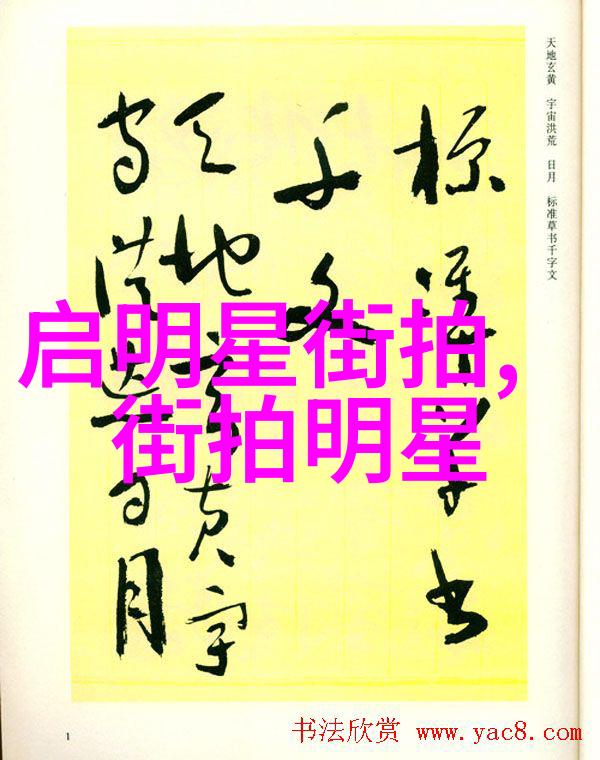 天地玄黄 宇宙洪荒 日月 标准草书千字文
标准草书
千文
天地玄黄宇
宙洪荒日月
启明星街拍,
街拍明星
1
书法欣赏 www.yac8.com